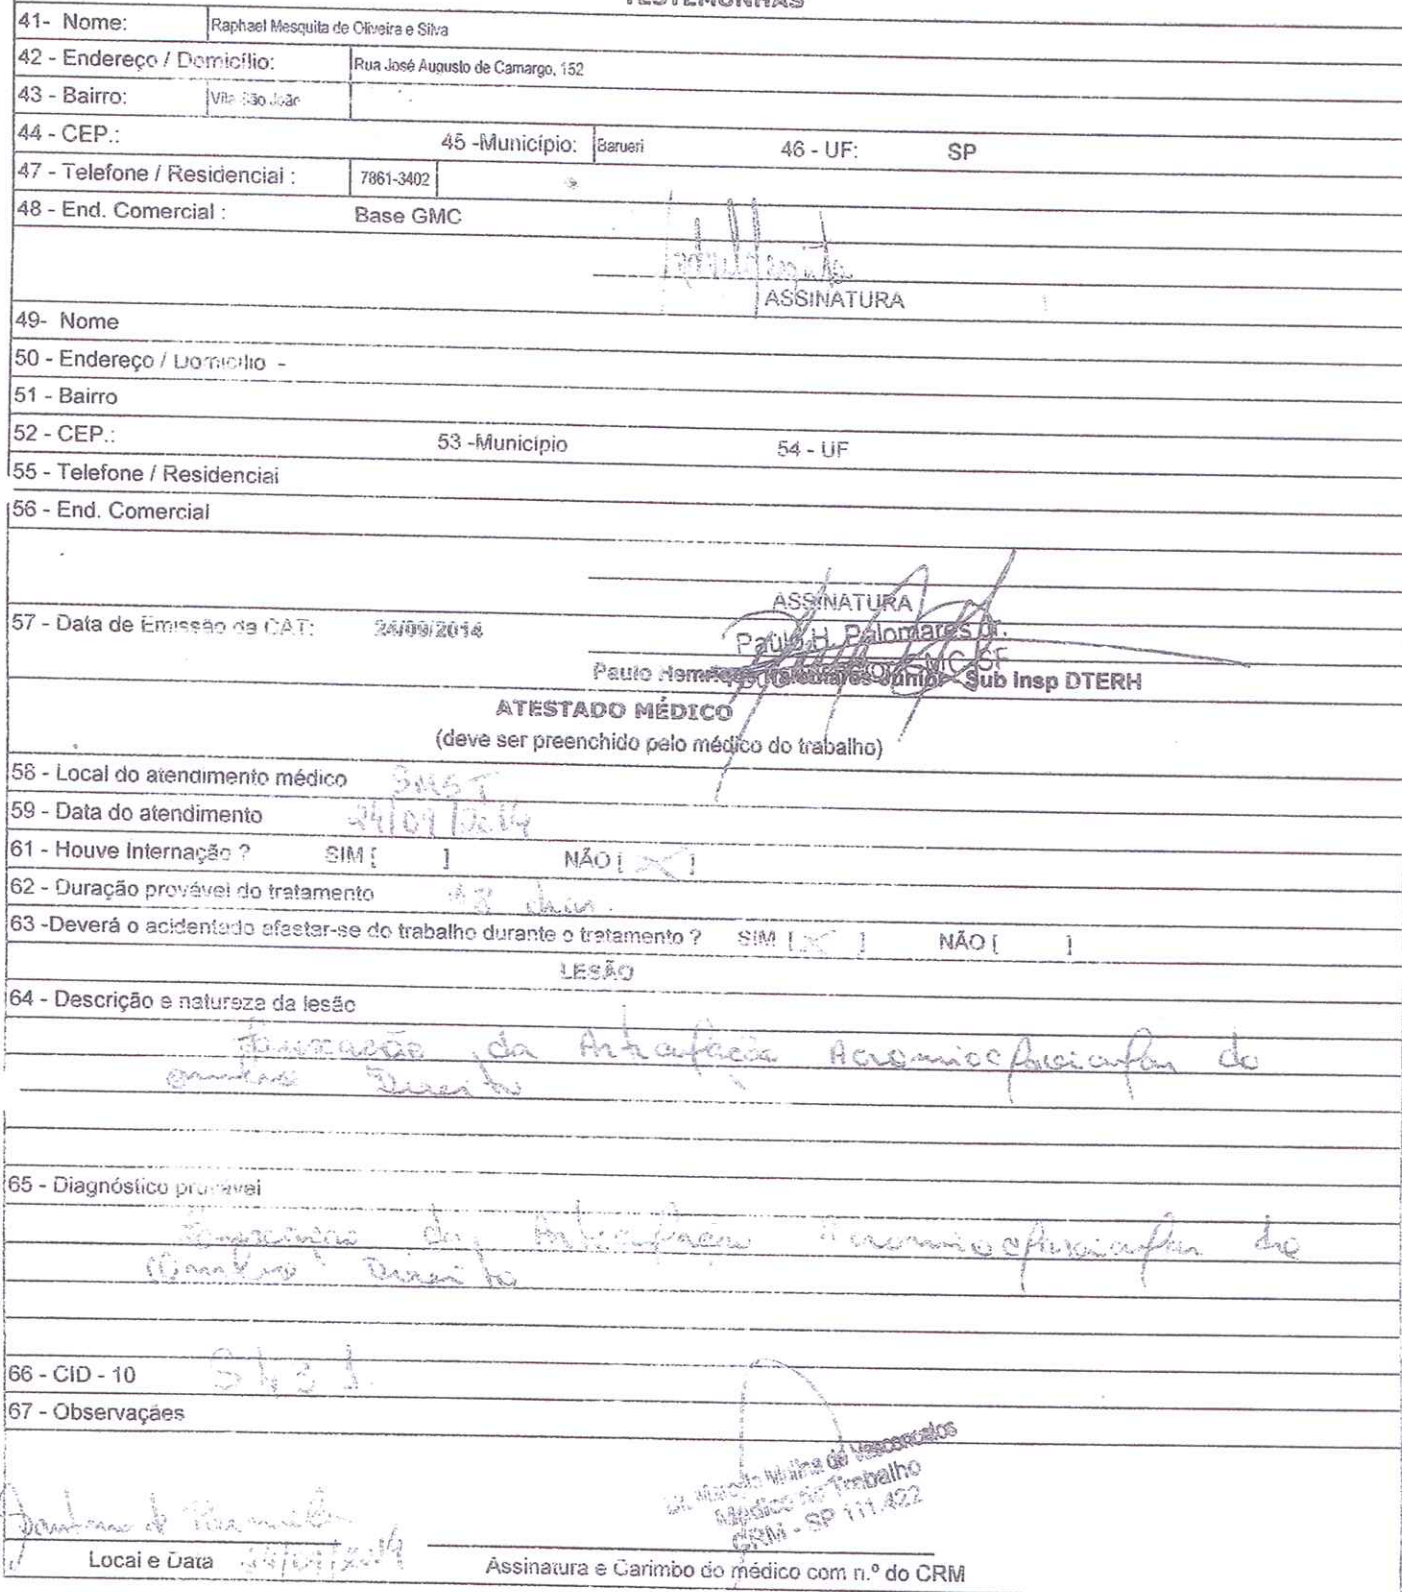 TESTEMUNHAS
41- Nome: Raphael Mesquita de Oliveira e Silva
42 - Endereço / Domicílio: Rua José Augusto de Camargo, 152
43 - Bairro: Vila São João
44 - CEP.: 45 -Município: Barueri 46 - UF: SP
47 - Telefone / Residencial : 7861-3402
48 - End. Comercial : Base GMC
ASSINATURA
49- Nome
50 - Endereço / Domicílio -
51 - Bairro
52 - CEP.: 53 -Município 54 - UF
55 - Telefone / Residencial
56 - End. Comercial
ASSINATURA
57 - Data de Emissão da CAT: 24/09/2014
Paulo H. Palomares Jr.
Paulo Henrique Palomares Junior - Sub Insp DTERH
ATESTADO MÉDICO
(deve ser preenchido pelo médico do trabalho)
58 - Local do atendimento médico
59 - Data do atendimento
61 - Houve Internação ? SIM [ ] NÃO [ X ]
62 - Duração provável do tratamento
63 -Deverá o acidentado afastar-se do trabalho durante o tratamento ? SIM [ X ] NÃO [ ]
LESÃO
64 - Descrição e natureza da lesão
da Articulação Acromioclavicular do
ombro Direito
65 - Diagnóstico provável
da Articulação Acromioclavicular do
Ombro Direito
66 - CID - 10
67 - Observações
Molina de Vasconcelos
Médico do Trabalho
CRM - SP 111.422
Local e Data Assinatura e Carimbo do médico com n.º do CRM